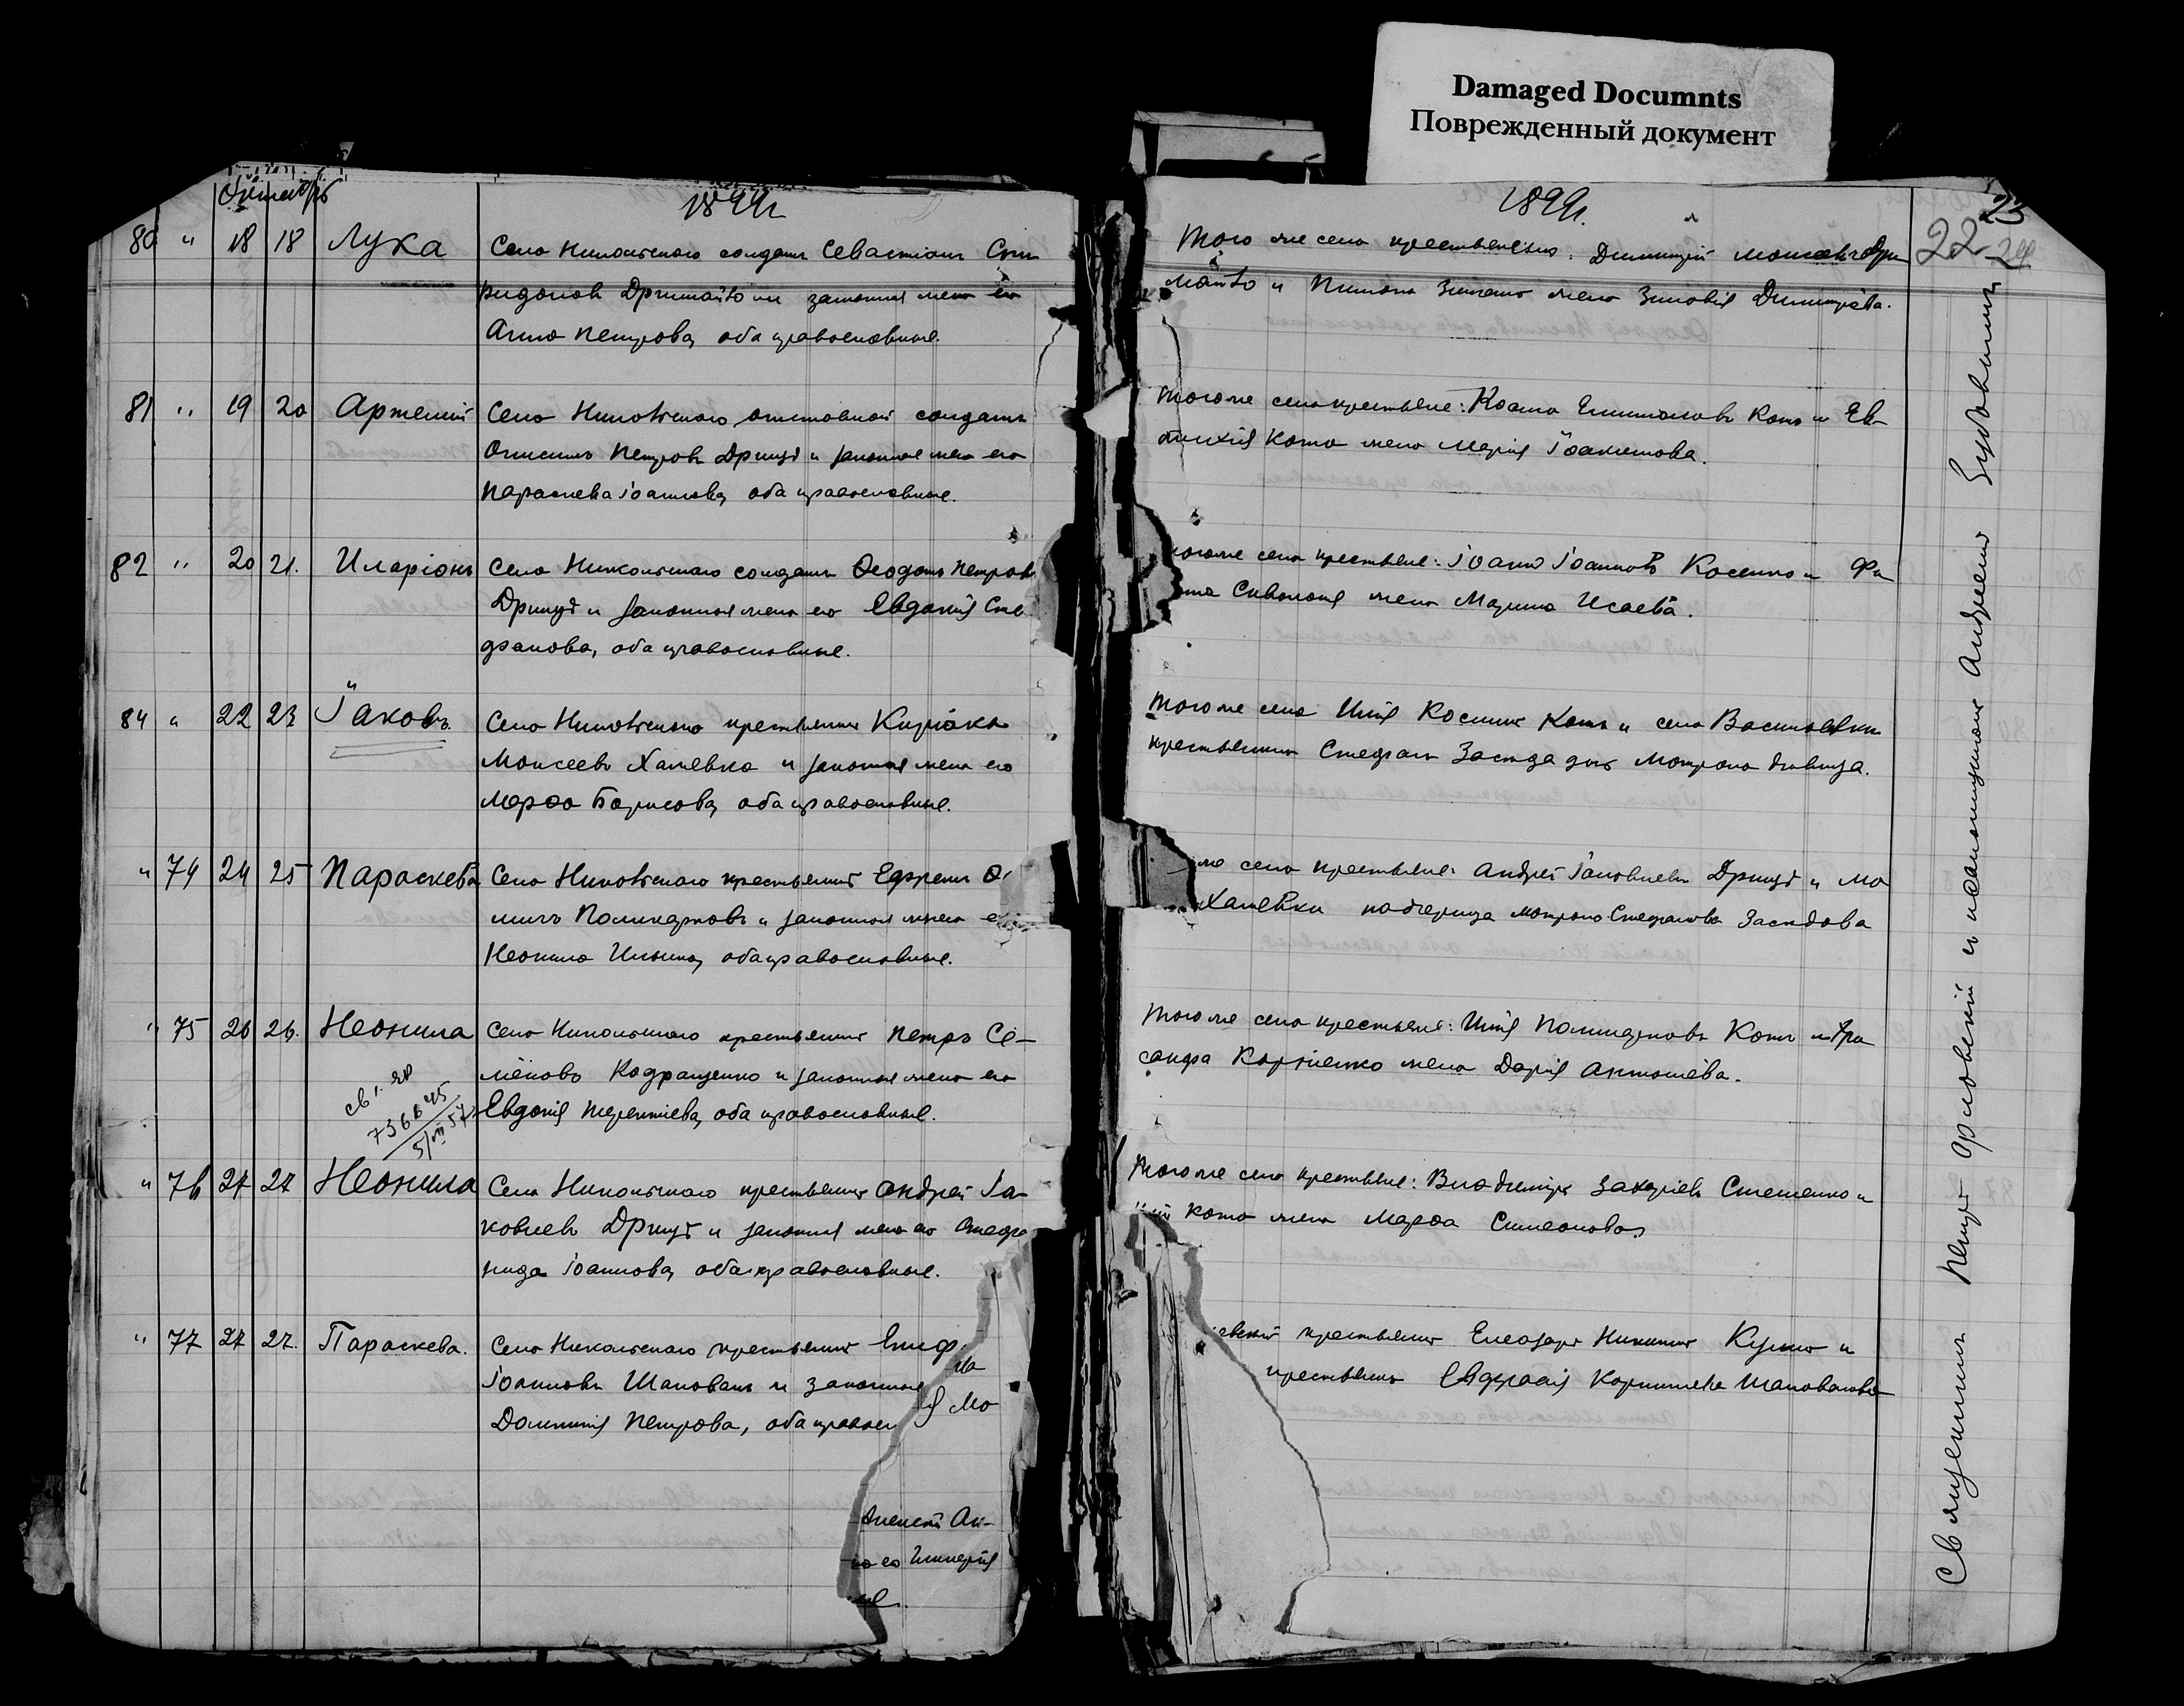 Damaged Documnts
Поврежденный документ
Октябрь
1899г.
80 " 18 18 Лука
Села Никольскаго солдатъ Севастіанъ Спи-
ридоновъ и законная жена его
Анна Петрова, оба православные.
81 " 19 20 Артемій
Села Никольскаго отставной солдатъ
Онисимъ Петровъ Дрицъ и законная жена его
Параскева Іоаннова, оба православные.
82 " 20 21. Иларіонъ
Села Никольскаго солдатъ Ѳеодотъ Петровъ
Дрицъ и законная жена его Евдокія Сте-
фанова, оба православные.
84 " 22 23 Іаковъ.
Села Никольскаго крестьянинъ Киріакъ
Моисеевъ Халевка и законная жена его
Марѳа Борисова, оба православные.
" 74 24 25 Параскева
Села Никольскаго крестьянинъ Ефремъ
Поликарповъ и законная жена
Неонила Ильина, оба православные.
" 75 26 26. Неонила
Села Никольскаго крестьянинъ Петръ Се-
меновъ и законная жена его
Евдокія Терентіева, оба православные.
св.
736645
5/III 57
" 76 27 27 Неонила
Села Никольскаго крестьянинъ Андрей Іа-
ковлевъ Дрицъ и законная жена его
Іоаннова, оба православные.
" 77 27 27. Параскева.
Села Никольскаго крестьянинъ Епиф
Іоанновъ Шаповалъ и законная
Домникія Петрова, оба правосл
на
я Мо
Алексій Ак-
на его Гликерія
ые.
1899г.
23
22
24
Того же села крестьяне: Димитрій Моисеевъ
и жена Зиновія Димитріева.
Того же села крестьяне: Косма Котъ и Ев-
Кота жена Марія Іоакимова.
того же села крестьяне: Іоаннъ Іоанновъ Косенко и Фи-
жена Марина Исаева.
Того же села Илія Косминъ Котъ и села Васильевки
крестьянина Стефана дочь Матрона девица.
же села крестьяне: Андрей Іаковлевъ Дрицъ и Мо
Халевки падчерица Матрона Стефанова
Того же села крестьяне: Илія Поликарповъ Котъ и
Карпенко жена Дарія Антоніева.
Того же села крестьяне: Владиміръ Захаріевъ Стеценко и
Кота жена Марѳа Симеонова
евскій крестьянинъ Елеазаръ Никитинъ и
крестьянка Евфросія Корнильева Шаповалова
Священникъ Петръ Орловскій и псаломщикъ Андрей